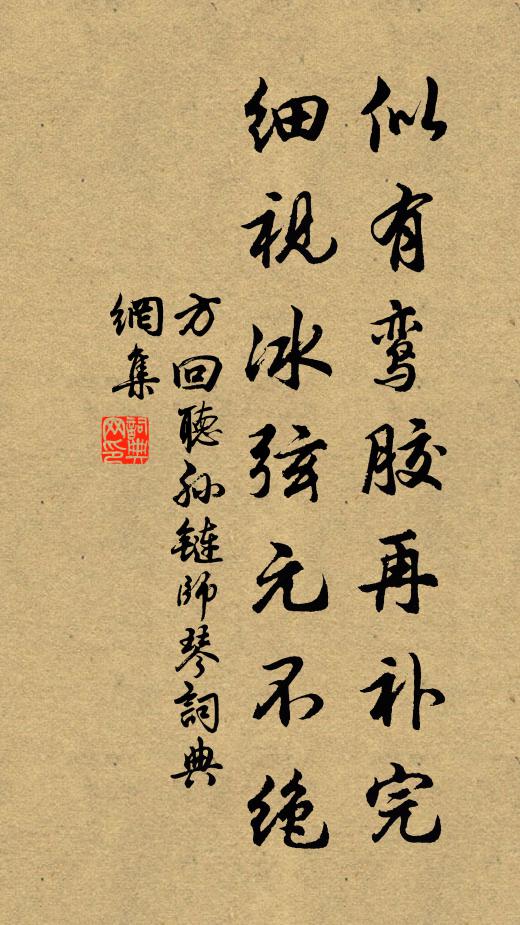 似有鸾胶再补完
细视冰弦元不绝
方回聽孙鏈師琴詞典
網集
詞典
网印